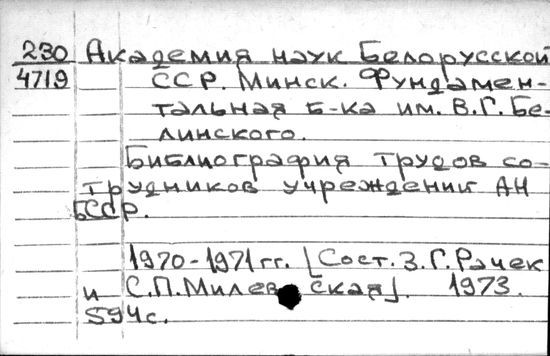 230 Академия наук Белорусской
4719 ССР. Минск. Фундамен-
тальная б-ка им. В.Г. Бе-
линского.
Библиография трудов со-
трудников учреждений АН
БССР.
1970-1971 гг. [Сост. З.Г. Рачек
и С.П. Милевская]. 1973.
594 с.